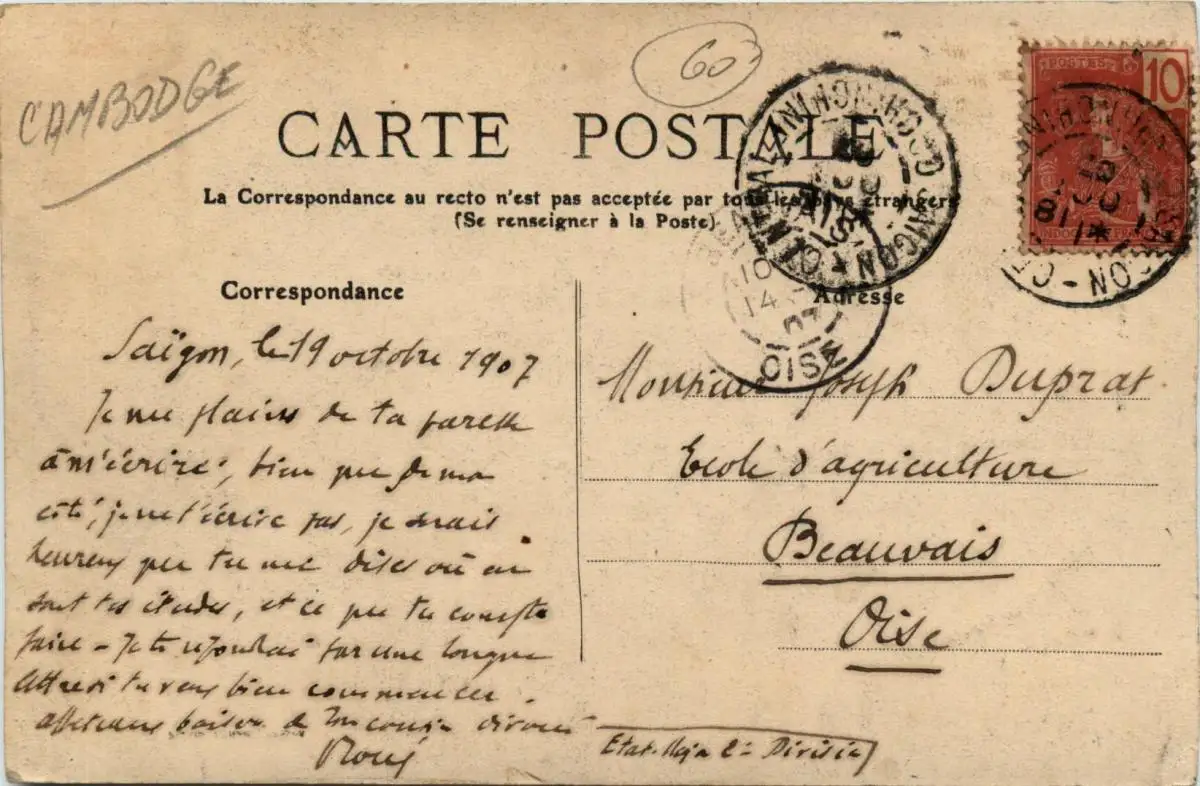 CAMBODGE
60
CARTE POSTALE
La Correspondance au recto n'est pas acceptée par tous les pays étrangers
(Se renseigner à la Poste)
POSTES 10
SAIGON - CENTRAL COCHINCHINE
OISE
Correspondance
Saïgon, le 19 octobre 1907
Je me plains de ta paresse
à m'écrire; bien que de mon
côté, je ne t'écrive pas, je serais
heureux que tu me dises où en
sont tes études, et ce que tu comptes
faire - Je te répondrai par une longue
lettre si tu veux bien commencer.
affectueux baisers de ton cousin dévoué
Etat-Major 2e Division
Adresse
Monsieur Joseph Duprat
Ecole d'agriculture
Beauvais
Oise